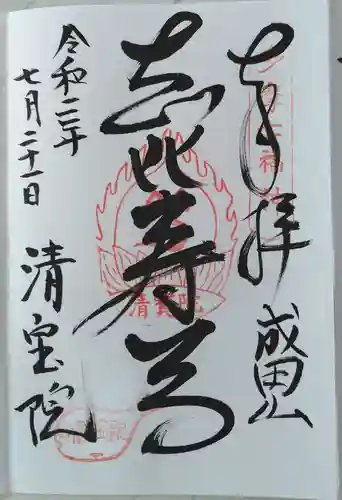 奉拝
成田山
恵比寿尊
令和二年
七月二十一日
清宝院
清寳院